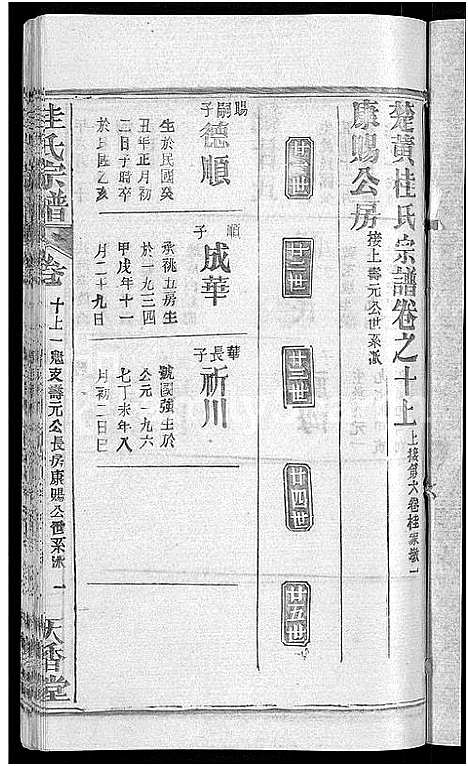 楚黃桂氏宗譜卷之十上 上接第六卷桂家墩一
康賜公房 接上壽元公世系派
廿一世
廿二世
廿三世
廿四世
廿五世
賜嗣子 德順
生於民國癸
丑年正月初
二日子時卒
於民國乙亥
順子 成華
承祧五房生
於一九三四
甲戌年十一
月二十九日
華長子 祈川
號國強生於
公元一九六
七丁未年八
月初二日巳
桂氏宗譜 卷 十上 一甩支壽元公長房康賜公世系派 一 天香堂